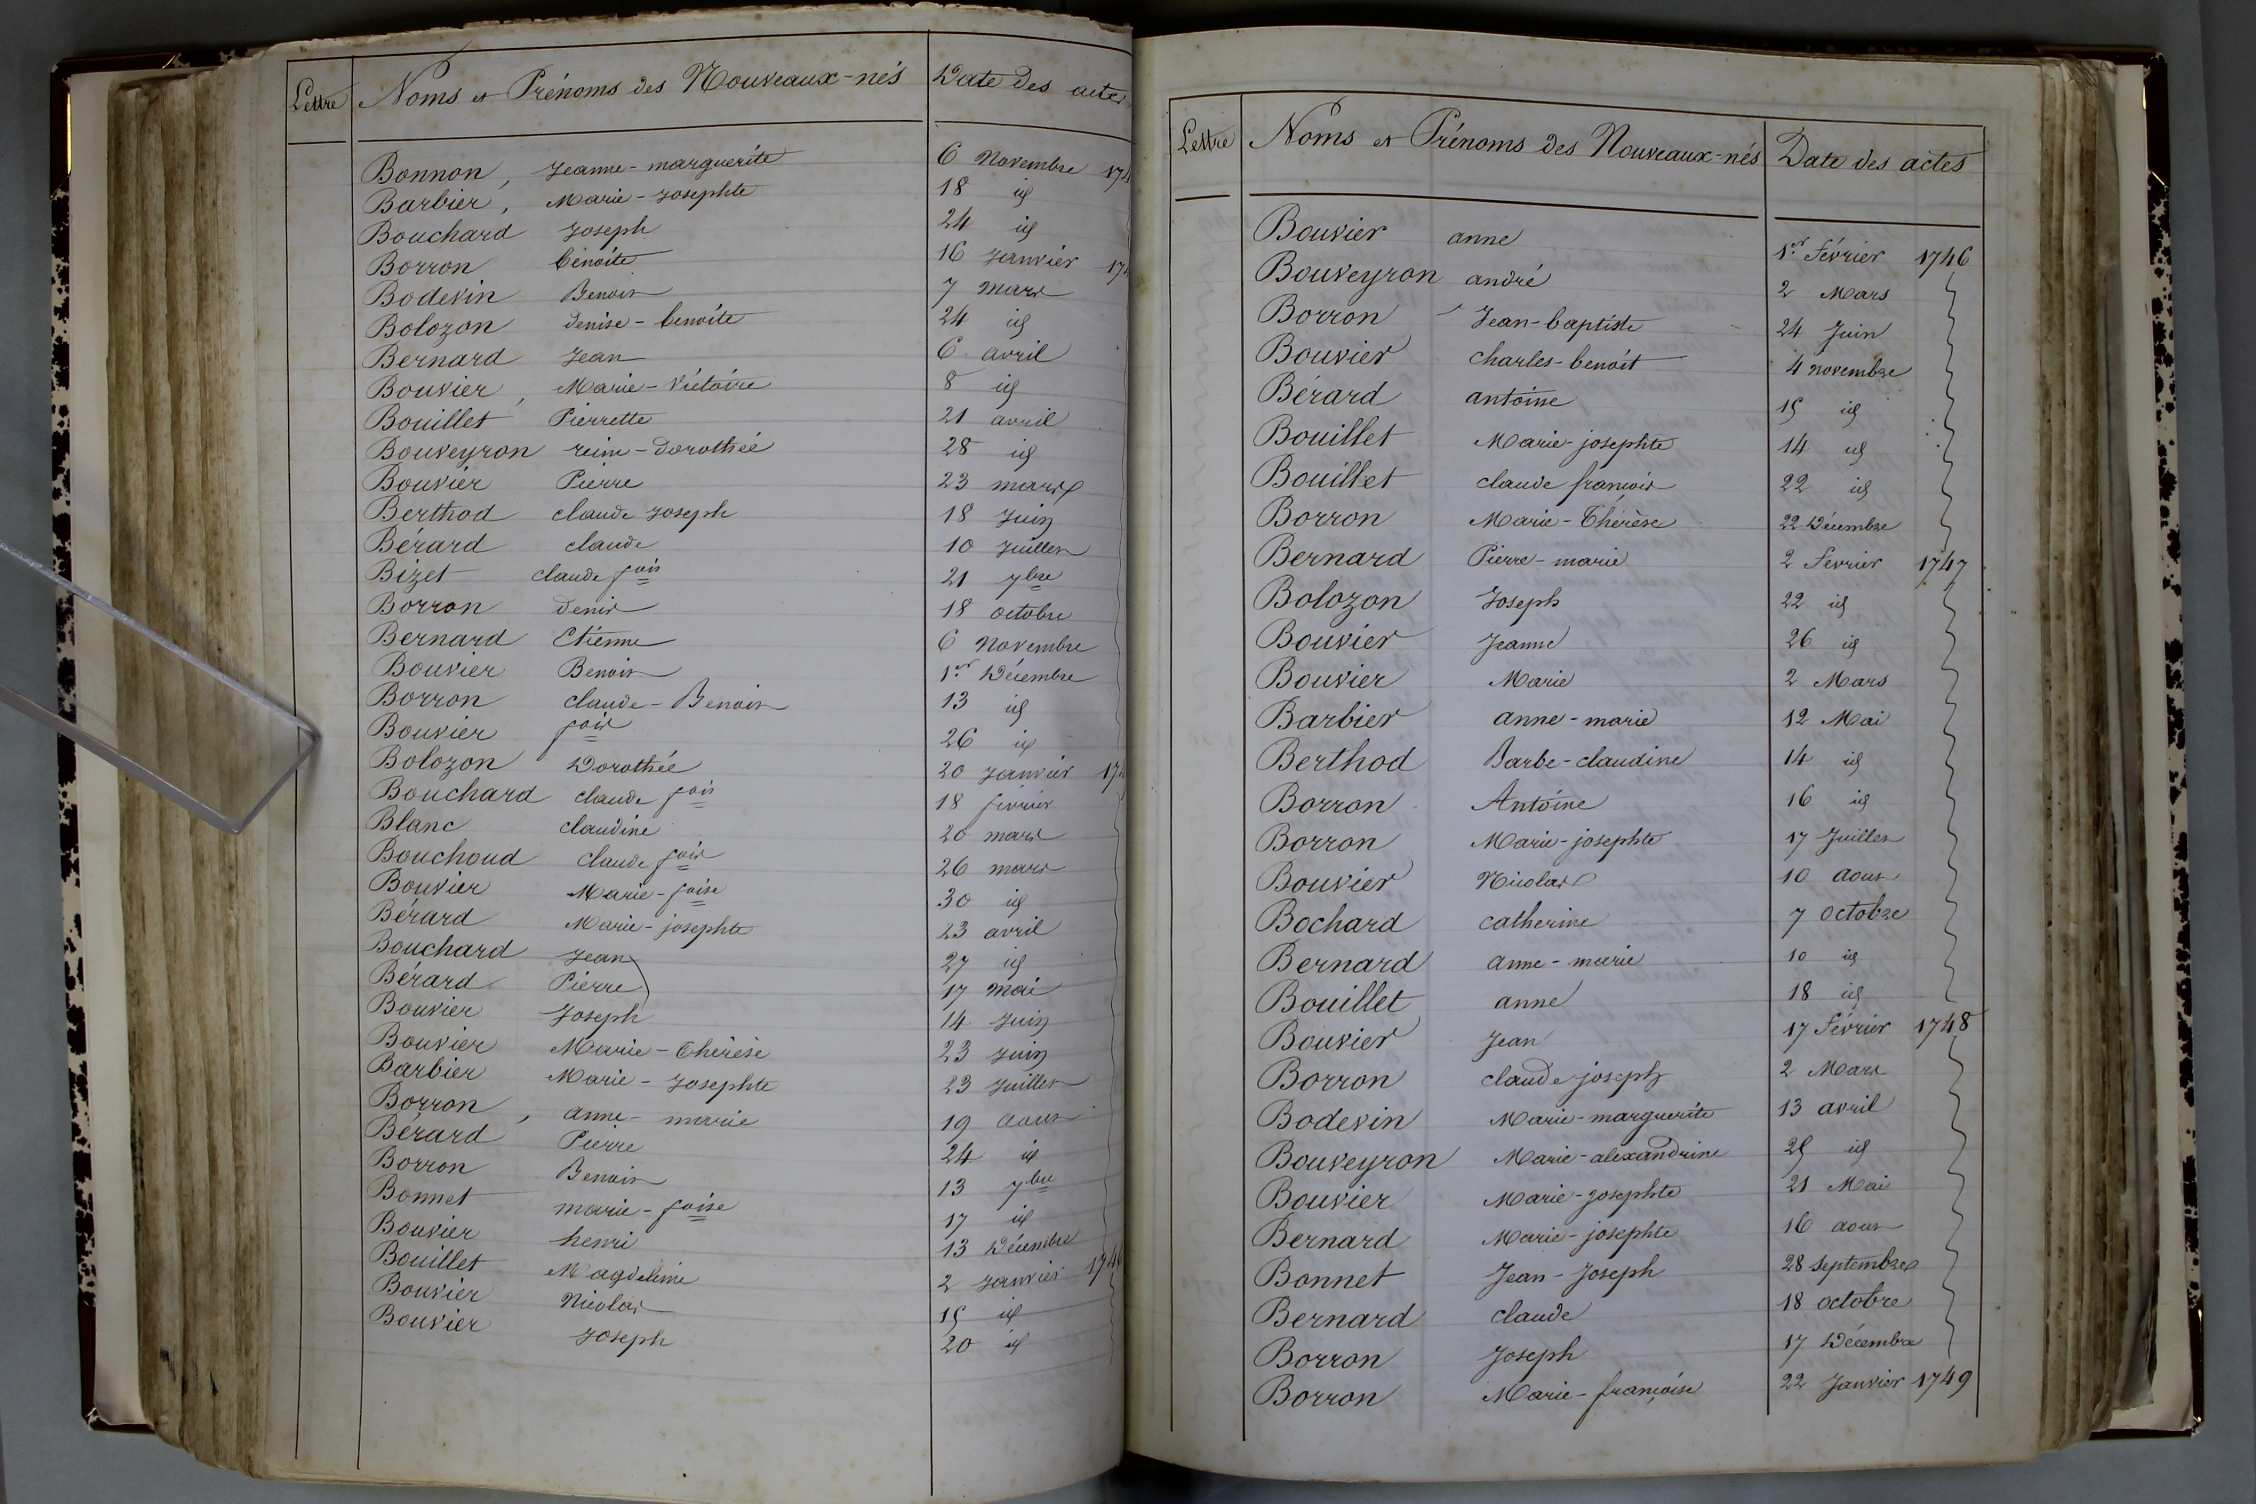 Lettre Noms et Prénoms des Nouveaux-nés Date des actes
Bonnon, Jeanne-marguerite 6 Novembre 174
Barbier, Marie-Josephte 18 id
Bouchard Joseph 24 id
Borron benoite 16 Janvier 17
Bodevin Benoit 7 Mars
Bolozon denise-benoite 24 id
Bernard Jean 6 avril
Bouvier, Marie-Victoire 8 id
Bouillet Pierrette 21 avril
Bouveyron reine-dorothée 28 id
Bouvier Pierre 23 mars
Berthod claude Joseph 18 Juin
Bérard claude 10 Juillet
Bizet claude fois 21 7bre
Borron denis 18 octobre
Bernard Etienne 6 Novembre
Bouvier Benoit 1er Décembre
Borron claude-Benoit 13 id
Bouvier fois 26 id
Bolozon Dorothée 20 Janvier 17
Bouchard claude fois 18 février
Blanc claudine 20 mars
Bouchoud claude fois 26 mars
Bouvier Marie-foise 30 id
Bérard Marie-josephte 23 avril
Bouchard Jean 27 id
Bérard Pierre 17 Mai
Bouvier Joseph 14 Juin
Bouvier Marie-Thérèse 23 Juin
Barbier Marie-Josephte 23 Juillet
Borron, anne-marie 19 aout
Bérard Pierre 24 id
Borron Benoit 13 7bre
Bonnet marie-foise 17 id
Bouvier henri 13 Décembre
Bouillet Magdeleine 2 Janvier 1746
Bouvier Nicolas 15 id
Bouvier Joseph 20 id
Lettre Noms et Prénoms des Nouveaux-nés Date des actes
Bouvier anne 1er Février 1746
Bouveyron andré 2 Mars
Borron Jean-baptiste 24 Juin
Bouvier charles-benoit 4 novembre
Bérard antoine 15 id
Bouillet Marie-josephte 14 id
Bouillet claude francois 22 id
Borron Marie-Thérèse 22 Décembre
Bernard Pierre-marie 2 Fevrier 1747
Bolozon Joseph 22 id
Bouvier Jeanne 26 id
Bouvier Marie 2 Mars
Barbier anne-marie 12 Mai
Berthod Barbe-claudine 14 id
Borron Antoine 16 id
Borron Marie-josephte 17 Juillet
Bouvier Nicolas 10 aout
Bochard catherine 7 octobre
Bernard anne-marie 10 id
Bouillet anne 18 id
Bouvier Jean 17 Février 1748
Borron claude joseph 2 Mars
Bodevin Marie-marguerite 13 avril
Bouveyron Marie-alexandrine 25 id
Bouvier Marie-Josephte 21 Mai
Bernard Marie-josephte 16 aout
Bonnet Jean-Joseph 28 Septembre
Bernard claude 18 octobre
Borron Joseph 17 Décembre
Borron Marie-françoise 22 Janvier 1749